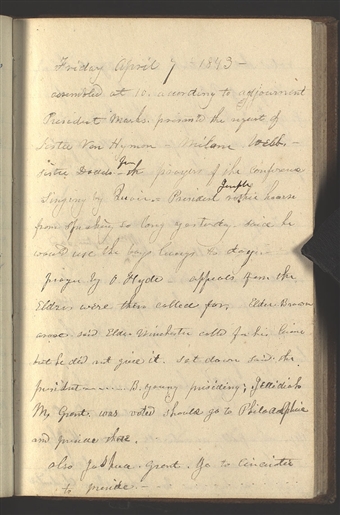 Friday April 7 1843 -
assembled at 10. according to adjournment
President Marks. presents the request of
Sister Van Hymon - Milam Webb -
sister Dodds - for the prayers of the conference
Singing by Quoir. - President rather hoarse
from speaking so long yesterday. said he
would use the boys lungs to day -
prayer by O. Hyde - appeals from the
Elders were then called for. Elder Brown
arose said Elder Winchester called for his license
but he did not give it. set down said the
president B. Young presiding; Jeddidiah
M. Grant, was voted should go to Philadelphia
and preside there.
also Joshua Grant. Go to Cincinatee
to preside. -
Temple